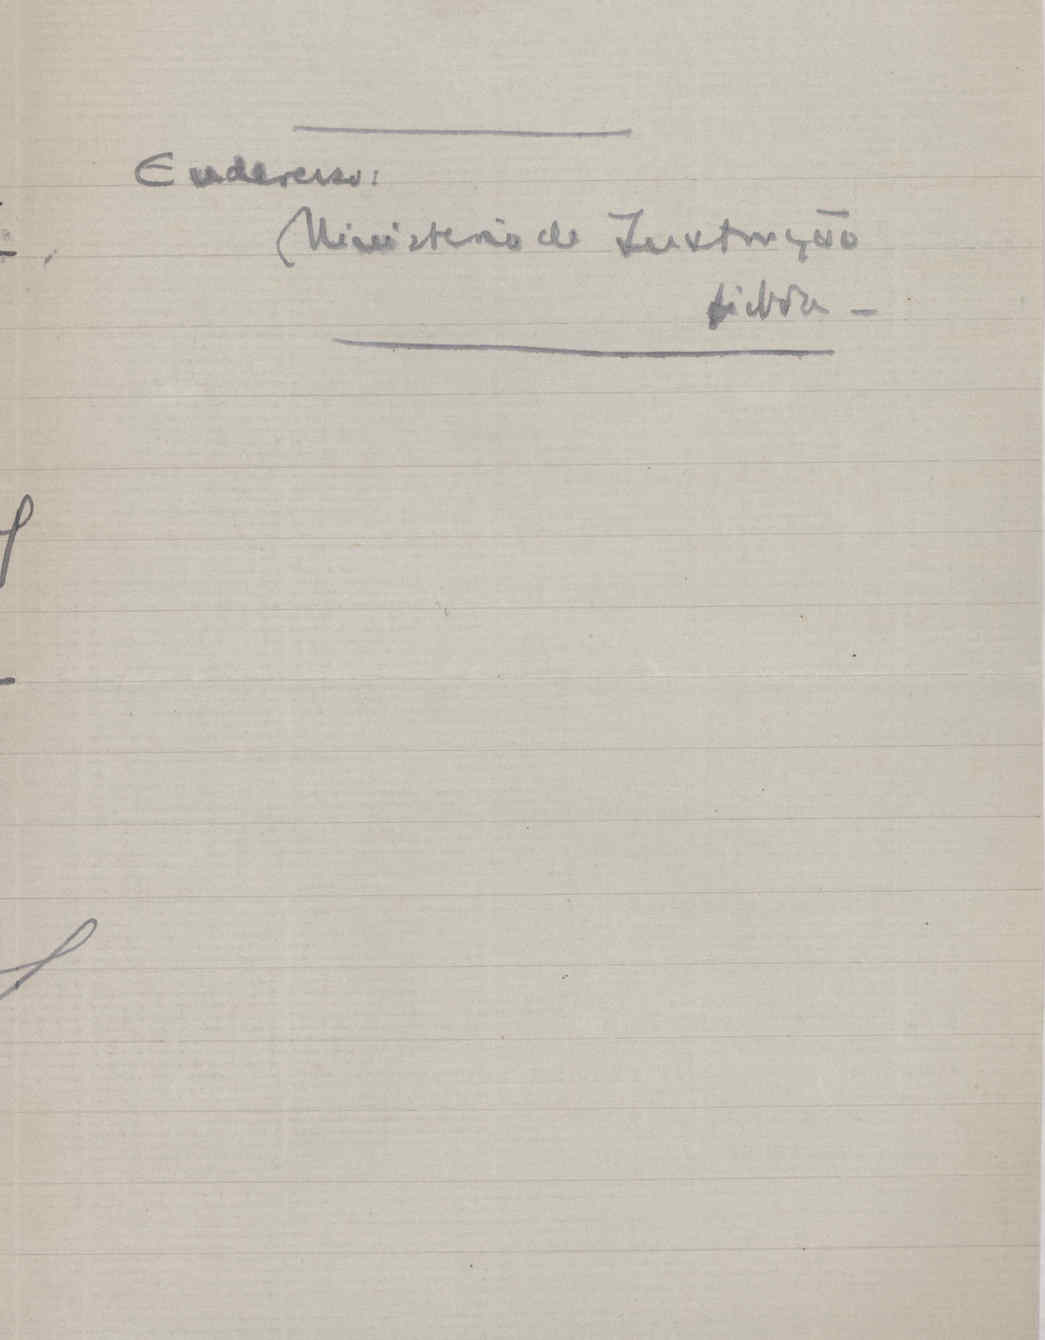 Enderesso:
Ministerio de Instrução
Lisboa -